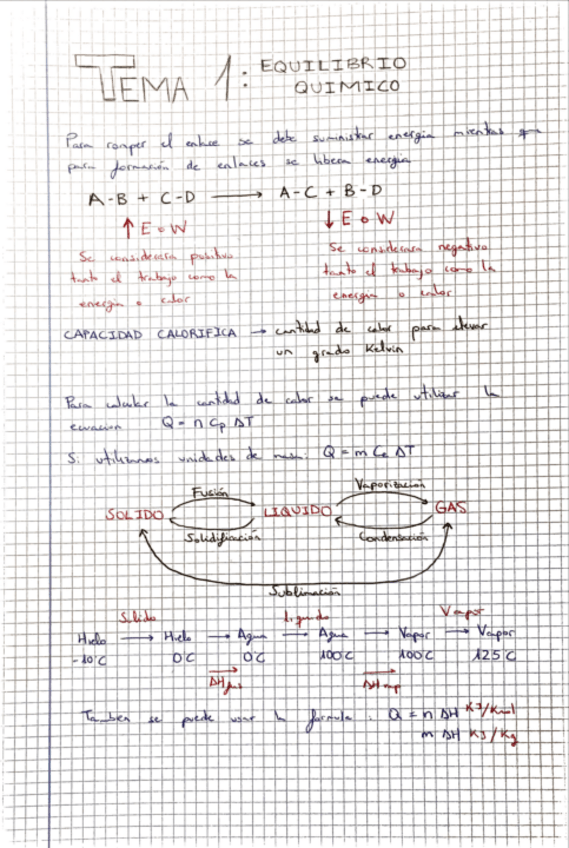 TEMA 1: EQUILIBRIO
QUIMICO
Para romper el enlace se debe suministrar energia mientas que
para formación de enlaces se libera energia
A-B + C-D → A-C + B-D
↑ E o W
↓ E o W
Se considerara positivo
tanto el trabajo como la
energia o calor
Se considerara negativo
tanto el trabajo como la
energia o calor
CAPACIDAD CALORIFICA → cantidad de calor para elevar
un grado Kelvin
Para calcular la cantidad de calor se puede utilizar la
ecuacion Q = n Cp ΔT
Si utilizamos unidades de masa: Q = m Ce ΔT
Fusión
Vaporización
SOLIDO LIQUIDO GAS
Solidificación
Condensación
Sublimación
Solido liquido Vapor
Hielo → Hielo → Agua → Agua → Vapor → Vapor
-10°C 0°C 0°C 100°C 100°C 125°C
ΔHfus ΔHvap
Tambien se puede usar la formula: Q = n ΔH KJ/Kmol
m ΔH KJ/Kg